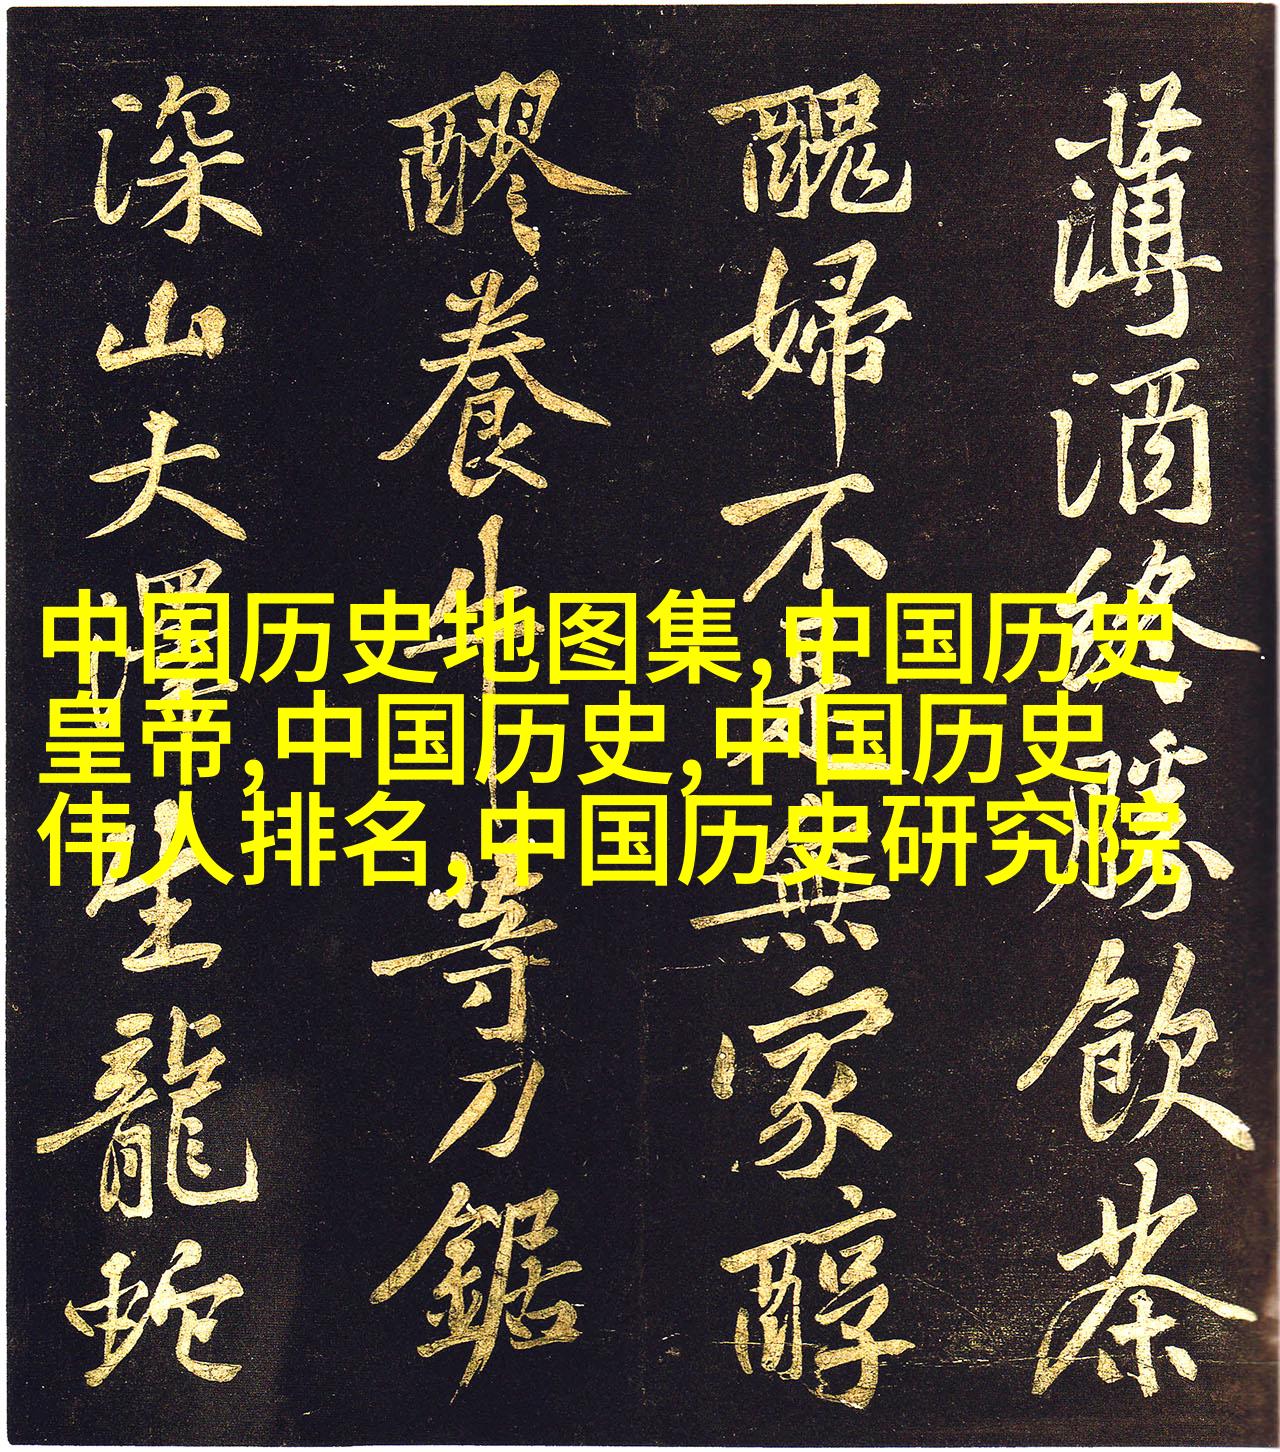 薄酒終勝飲茶
醜婦不是無家醇
醪養牛等刀鋸
深山大澤生龍蛇
中国历史地图集,中国历史
皇帝,中国历史,中国历史
伟人排名,中国历史研究院